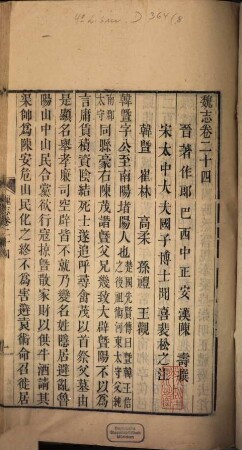 魏志卷二十四
晉著作郎巴西中正安漢陳壽撰
宋太中大夫國子博士聞喜裴松之注
韓暨 崔林 高柔 孫禮 王觀
韓暨字公至南陽堵陽人也
楚國先賢傳曰暨韓王信之後祖術河東太守父純南郡太守
同縣豪右陳茂譖暨父兄幾致大辟暨陽不以為
言庸賃積資陰結死士遂追呼尋禽茂以首祭父墓由
是顯名舉孝廉司空辟皆不就乃變名姓隱居避亂魯
陽山中山民合黨欲行寇掠暨散家財以供牛酒請其
渠帥為陳安危山民化之終不為害避袁術命召徙居